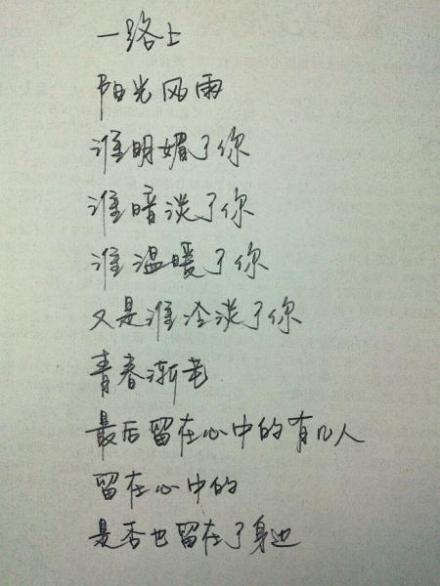 一路上
阳光风雨
谁明媚了你
谁暗淡了你
谁温暖了你
又是谁冷淡了你
青春渐老
最后留在心中的有几人
留在心中的
是否也留在了身边